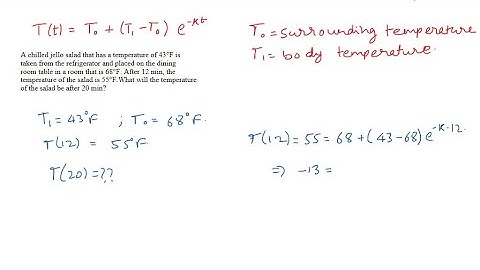 T(t) = T₀ + (T₁ - T₀) e^-kt
T₀ = surrounding temperature
T₁ = body temperature.
A chilled jello salad that has a temperature of 43°F is
taken from the refrigerator and placed on the dining
room table in a room that is 68°F. After 12 min, the
temperature of the salad is 55°F.What will the temperature
of the salad be after 20 min?
T₁ = 43°F ; T₀ = 68°F.
T(12) = 55°F
T(20) = ??
T(12) = 55 = 68 + (43-68) e^-k·12
⇒ -13 =